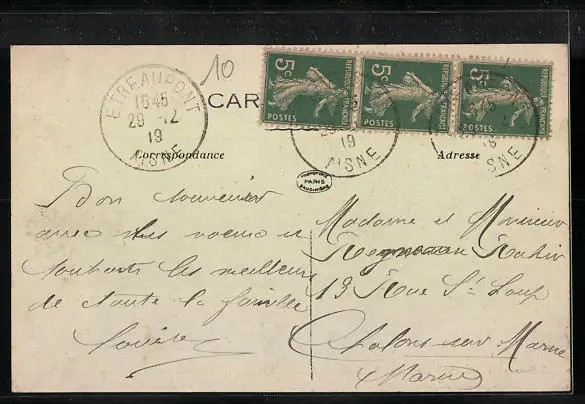 10
ETREAUPONT
16 45
29 -12
19
AISNE
5c RÉPUBLIQUE FRANÇAISE POSTES
5c RÉPUBLIQUE FRANÇAISE POSTES
5c RÉPUBLIQUE FRANÇAISE POSTES
19
AISNE
CAR
Correspondance
Adresse
PARIS
Bon souvenir
avec nos voeux et
souhaits les meilleurs
de toute la famille
Louise
Madame et Monsieur
13 Rue St Loup
Chalons sur Marne
Marne